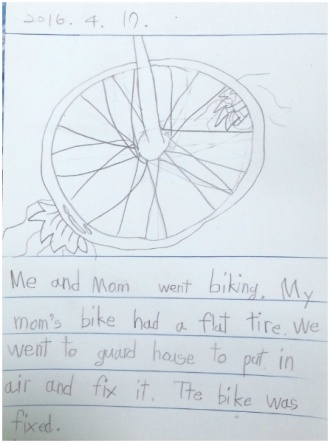 2016. 4. 17.
Me and Mom went biking. My
mom's bike had a flat tire. We
went to guard house to put in
air and fix it. Tte bike was
fixed.